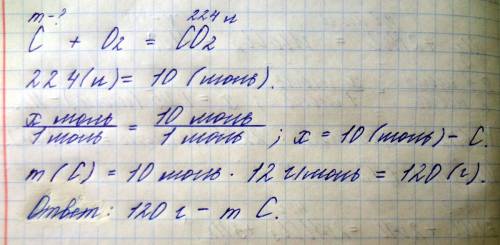 m-? 224 л
C + O2 = CO2
224(л) = 10 (моль).
x моль / 1 моль = 10 моль / 1 моль ; x = 10 (моль) - C.
m (C) = 10 моль · 12 г/моль = 120 (г).
Ответ: 120 г - m C.